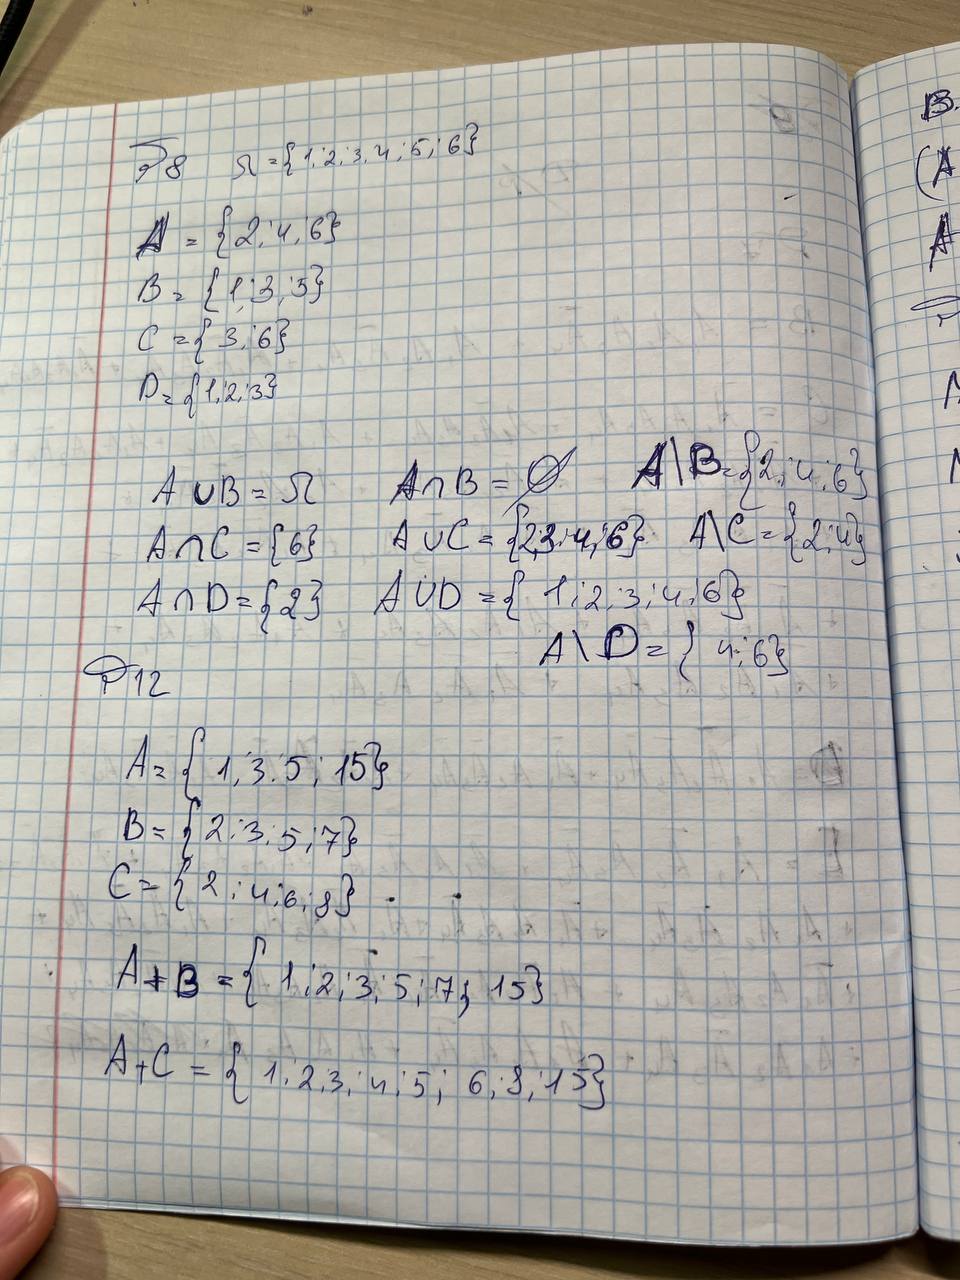 P8 Ω = {1; 2; 3; 4; 5; 6}
A = {2; 4; 6}
B = {1; 3; 5}
C = {3; 6}
D = {1; 2; 3}
A ∪ B = Ω A ∩ B = ∅ A \ B = {2; 4; 6}
A ∩ C = {6} A ∪ C = {2; 3; 4; 6} A \ C = {2; 4}
A ∩ D = {2} A ∪ D = {1; 2; 3; 4; 6}
A \ D = {4; 6}
P12
A = {1; 3; 5; 15}
B = {2; 3; 5; 7}
C = {2; 4; 6; 8}
A + B = {1; 2; 3; 5; 7; 15}
A + C = {1; 2; 3; 4; 5; 6; 8; 15}
B.
(A
A